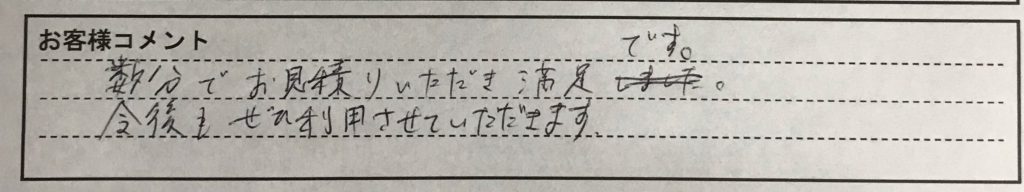 お客様コメント
です。
数分でお見積りいただき満足しました。
今後もぜひ利用させていただきます。